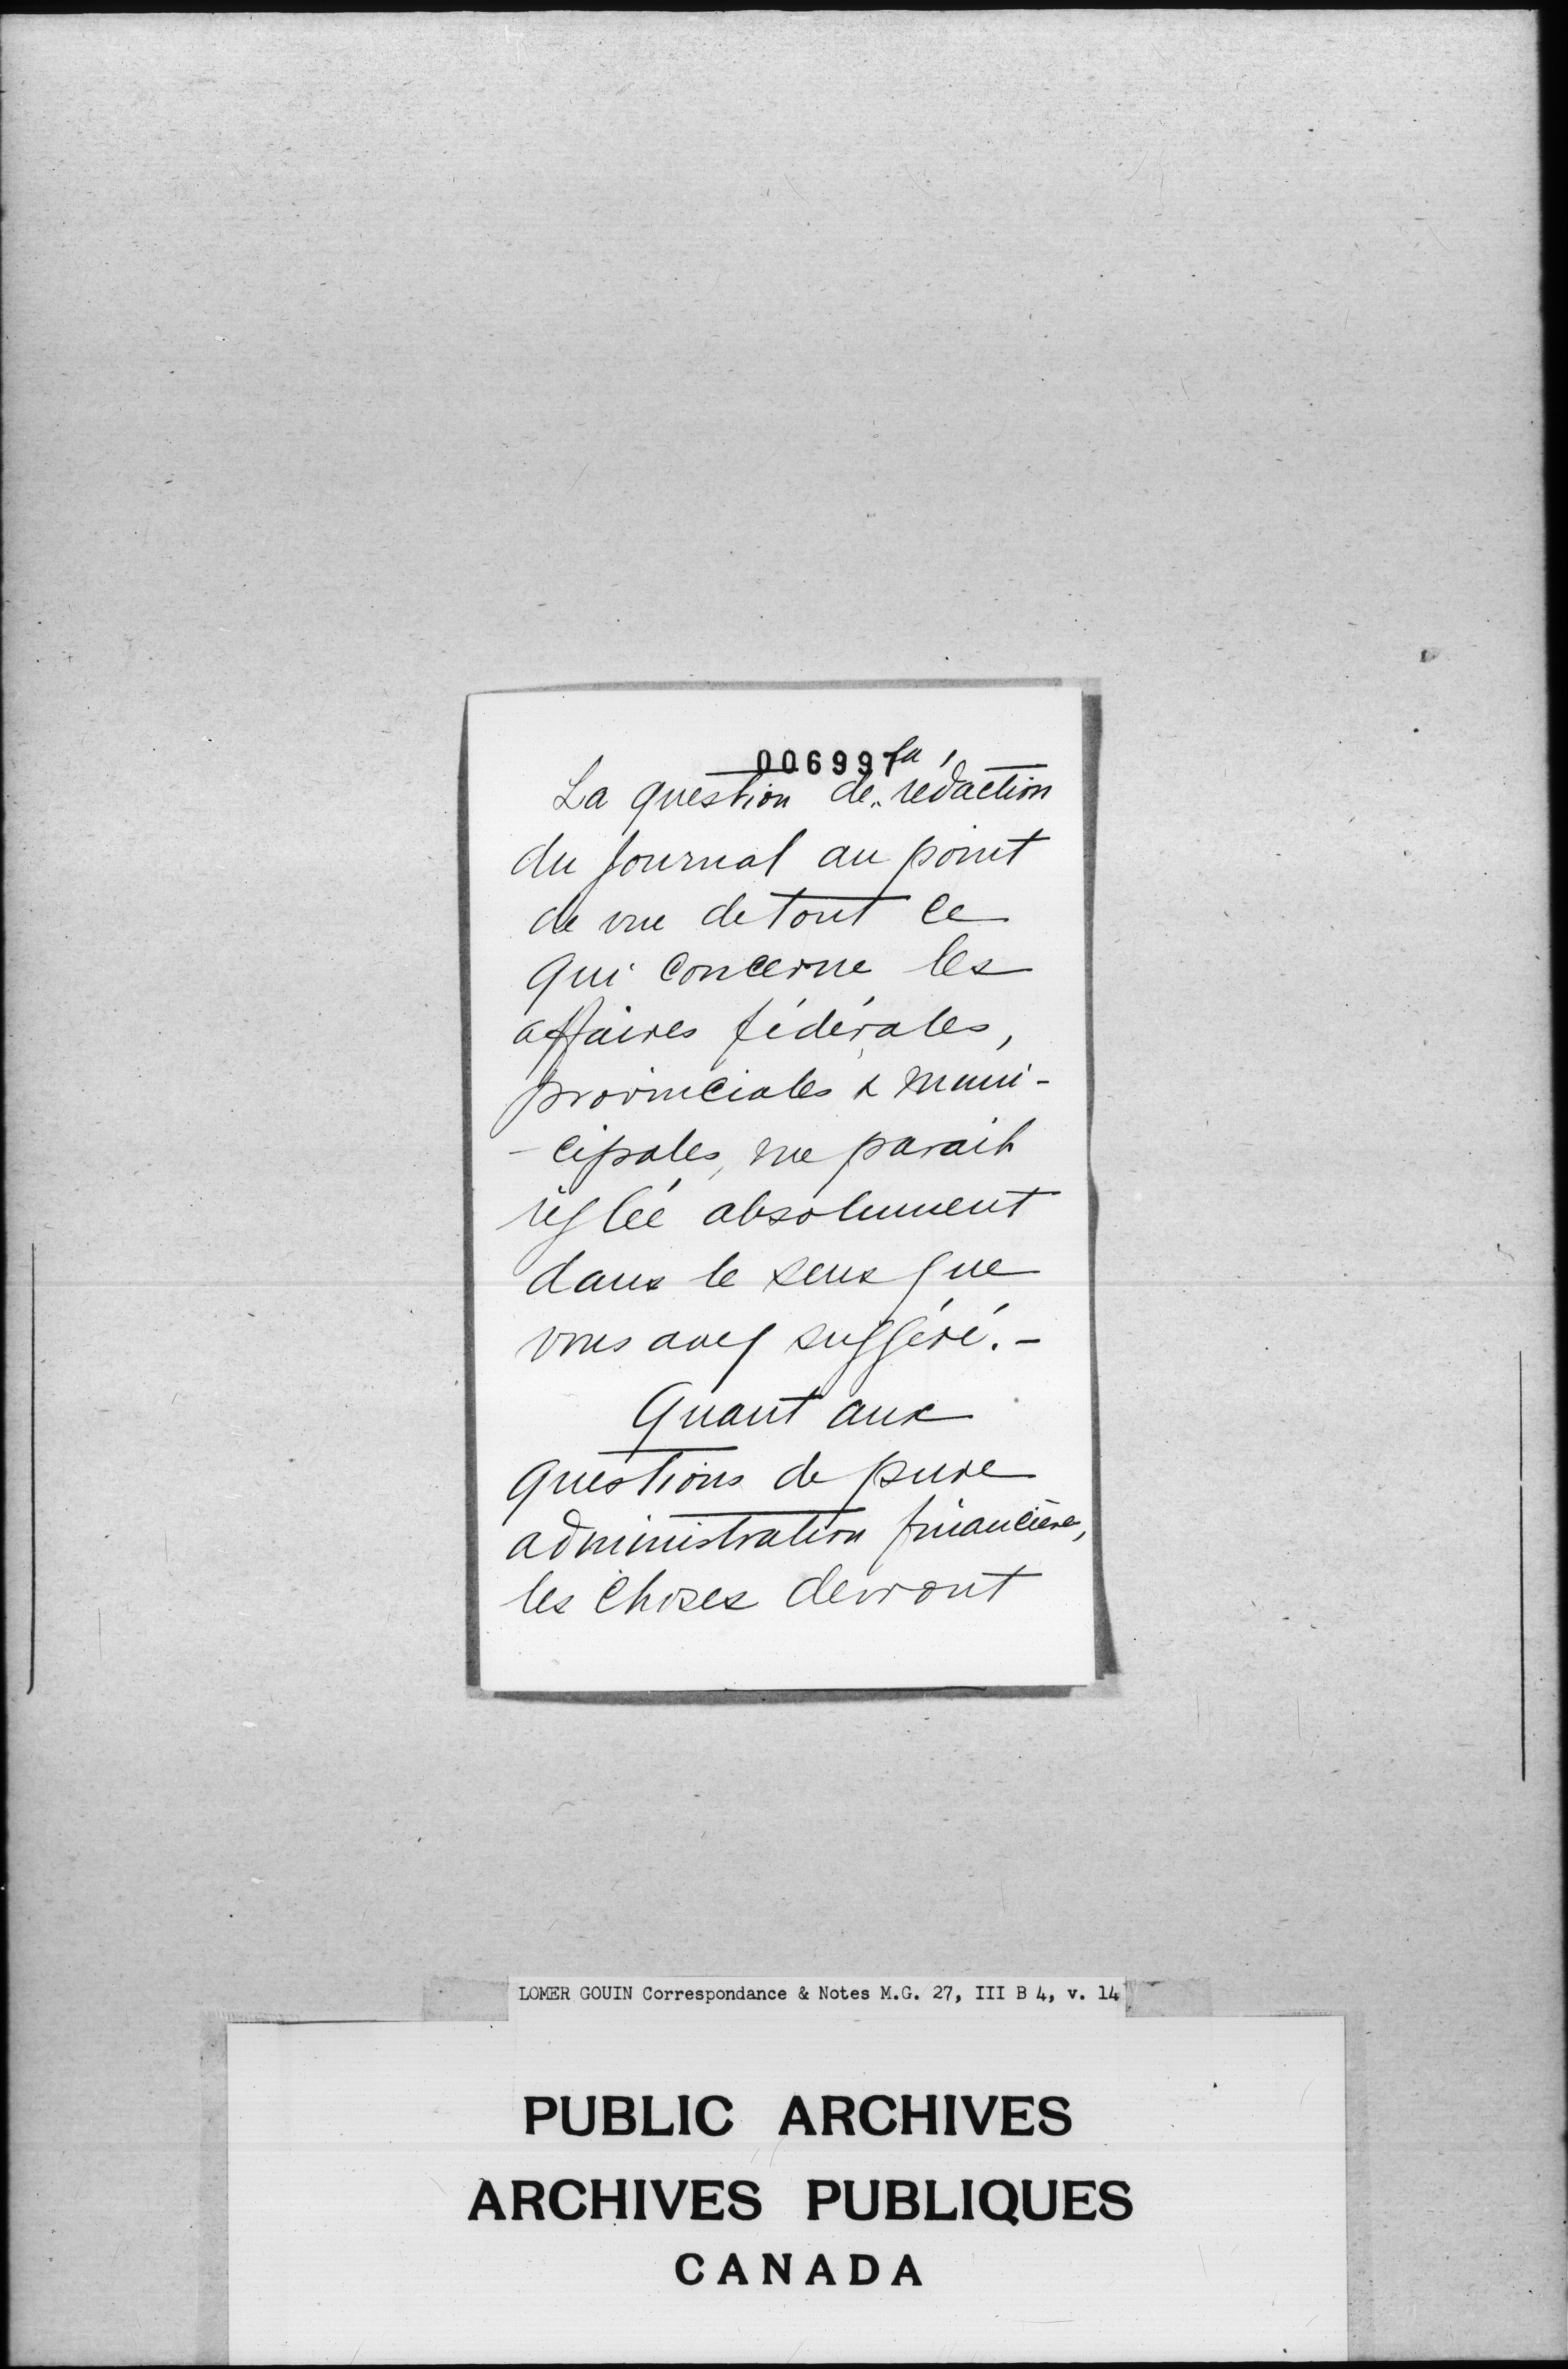 006997
La question de la rédaction
du journal au point
de vue de tout ce
qui concerne les
affaires fédérales,
provinciales & muni-
-cipales, me parait
réglée absolument
dans le sens que
vous avez suggéré. -
Quant aux
questions de pure
administration financière,
les choses devront
LOMER GOUIN Correspondance & Notes M.G. 27, III B 4, v. 14
PUBLIC ARCHIVES
ARCHIVES PUBLIQUES
CANADA